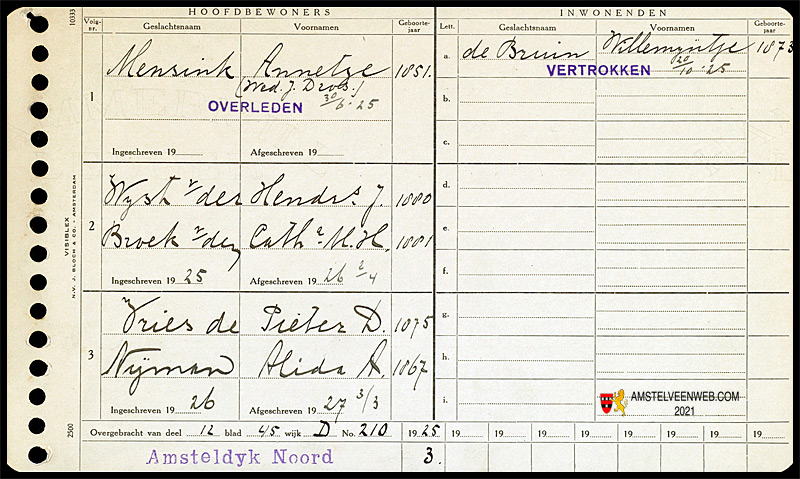 HOOFDBEWONERS
INWONENDEN
10333
Volg-nr.
Geslachtsnaam
Voornamen
Geboorte-jaar
Lett.
Geslachtsnaam
Voornamen
Geboorte-jaar
1
Mensink Annetje 1851.
(Wed. J. Droes.)
OVERLEDEN 30/6 - 25
Ingeschreven 19
Afgeschreven 19
2
Wyst v/der Hendrs J. 1880
Broek v/den Cath a M. H. 1881
Ingeschreven 19 25
Afgeschreven 19 26 2/4
3
Vries de Pieter D. 1875
Nijman Alida A. 1867
Ingeschreven 19 26
Afgeschreven 19 27 3/3
a. de Bruin Willemijntje 1873
VERTROKKEN 20/10 - 25
b.
c.
c.
d.
e.
f.
g.
h.
i.
VISIBLEX
N.V. J. BLOCH & CO. - AMSTERDAM
2500
AMSTELVEENWEB.COM
2021
Overgebracht van deel 12 blad 45 wijk D No. 210 19 25 19 19 19 19 19 19 19
Amsteldyk Noord 3.